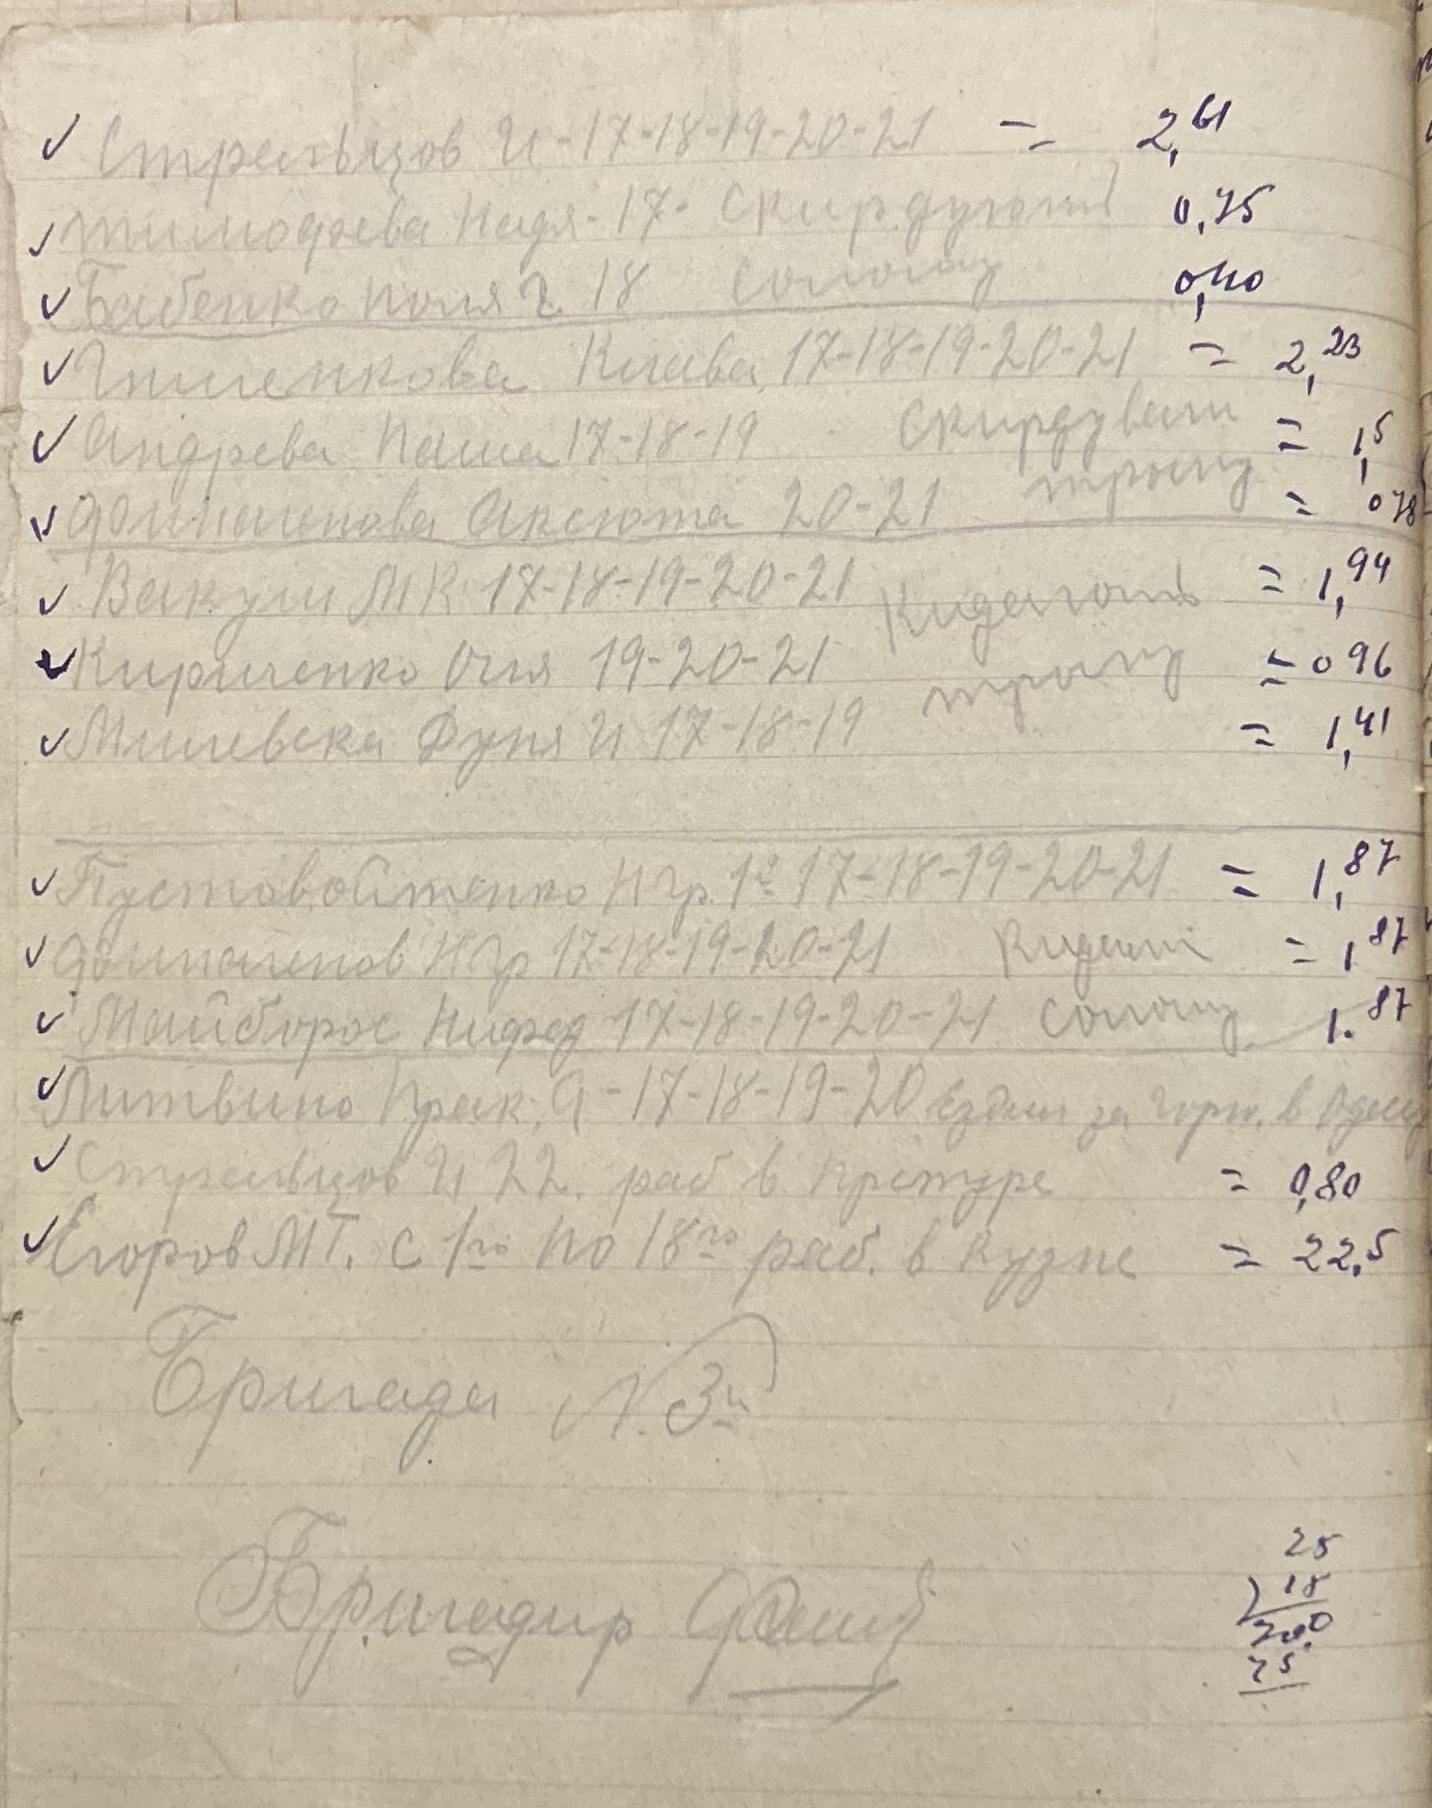 Стрельцов И - 17-18-19-20-21 = 2,61
Тимофеева Надя - 17 - Скирдують 0,75
Бабенко Поля Г. 18 солому 0,40
Клава 17-18-19-20-21 = 2,23
Андрева Паша 17-18-19 Скирдували = 1,5
Аксюта 20-21 трыну = 078
Вакули М К 17-18-19-20-21 Кидають = 1,94
Кириченко Оля 19-20-21 трыну = 096
Милевска Дуня И 17-18-19 = 1,41
Пустовойтенко Н гр. 17-18-19-20-21 = 1,87
Н гр 17-18-19-20-21 Кидали = 1 87
Майборос Нифед 17-18-19-20-21 Солому 1.87
Литвино Прак. - 17-18-19-20 Ездил за в Одессу
Стрельцов И 22. раб в = 0,80
Егоров М Т. с 1го по 18го раб. в кузне = 22,5
Бригада N. 3й
Бригадир
25
18
200
25